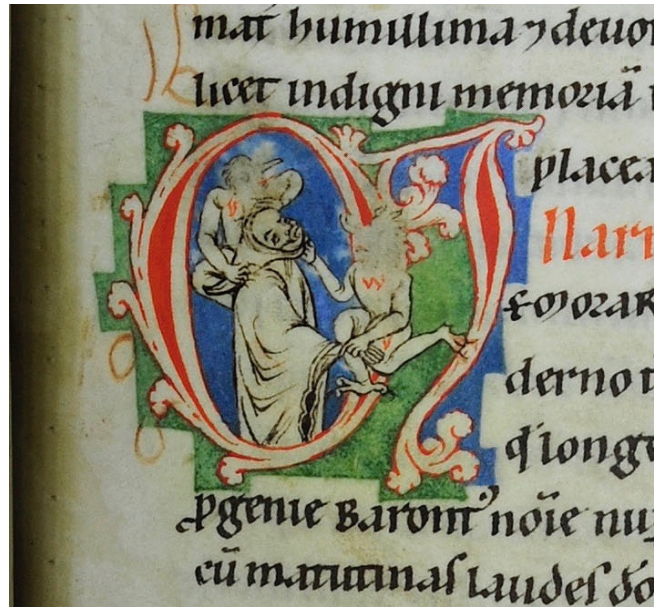 mat̄ humillima ⁊ deuo
licet indigni memoriā
placea
Narr
M
& morar
derno t
q̄ longe
ꝓgenie Baront᷒ nōıe nu
cū matutinas laudes do